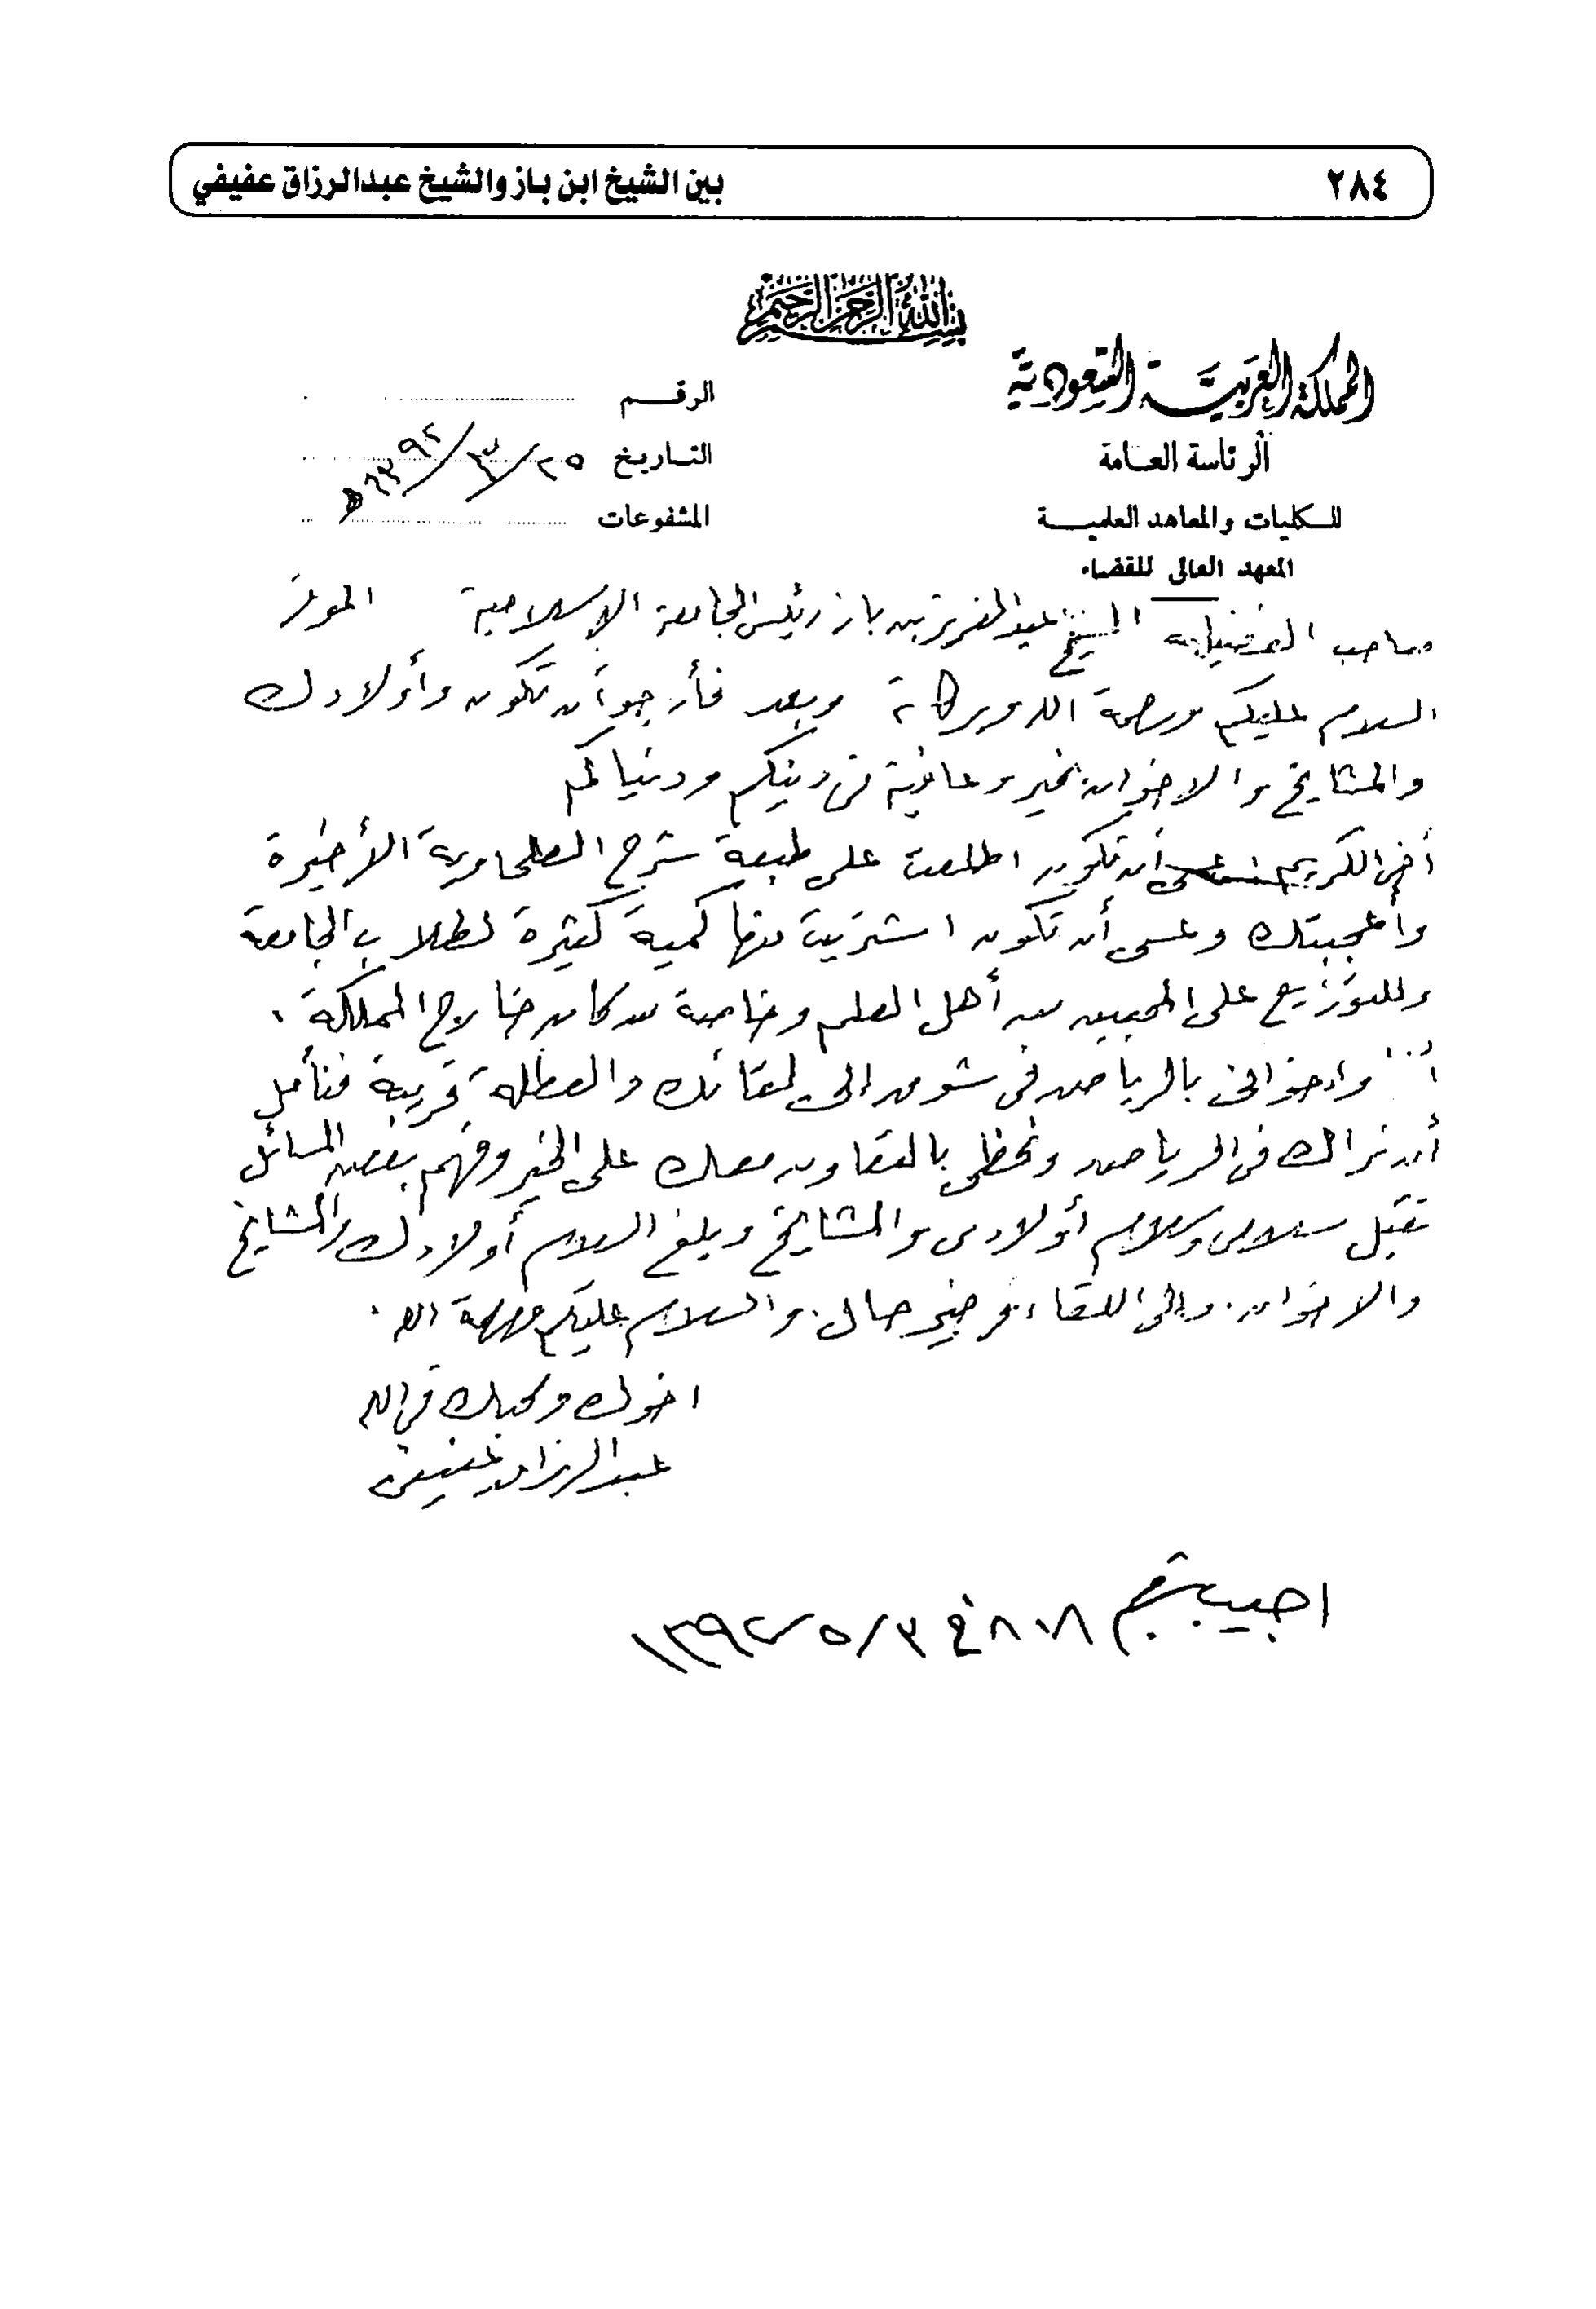 ٢٨٤
بين الشيخ ابن باز والشيخ عبدالرزاق عفيفي
بسم الله الرحمن الرحيم
المملكة العربية السعودية
الرئاسة العامة
للكليات والمعاهد العلمية
المعهد العالى للقضاء
الرقم
التاريخ ٢٥/٣/١٣٩٢هـ
المشفوعات
صاحب الفضيلة الشيخ عبدالعزيز بن باز رئيس الجامعة الإسلامية الموقر
السلام عليكم ورحمة الله وبركاته وبعد فأرجو أن تكون وأولادك
والمشايخ والاخوان بخير وعافية فى دينكم ودنياكم
أخى الكريم عسى أن تكون اطلعت على طبعة شرح الطحاوية الأخيرة
وأعجبتك وعسى أن تكون اشتريت منها كمية كثيرة لطلاب الجامعة
وللتوزيع على المحبين من أهل العلم وخاصة من كان خارج المملكة .
أنا وإخوانى بالرياض فى شوق إلى لقائك والعطلة قريبة فنأمل
أن نراك فى الرياض ونحظى بالتعاون معك على الخير وفهم بعض المسائل
تقبل سلامى وسلام أولادى والمشايخ وبلغ السلام أولادك والمشايخ
والاخوان . وإلى اللقاء فى خير حال . والسلام عليكم ورحمة الله .
اخوك ومحبك فى الله
عبدالرزاق عفيفى
اجيب برقم ٨٠٨ في ٣/٥/١٣٩٢